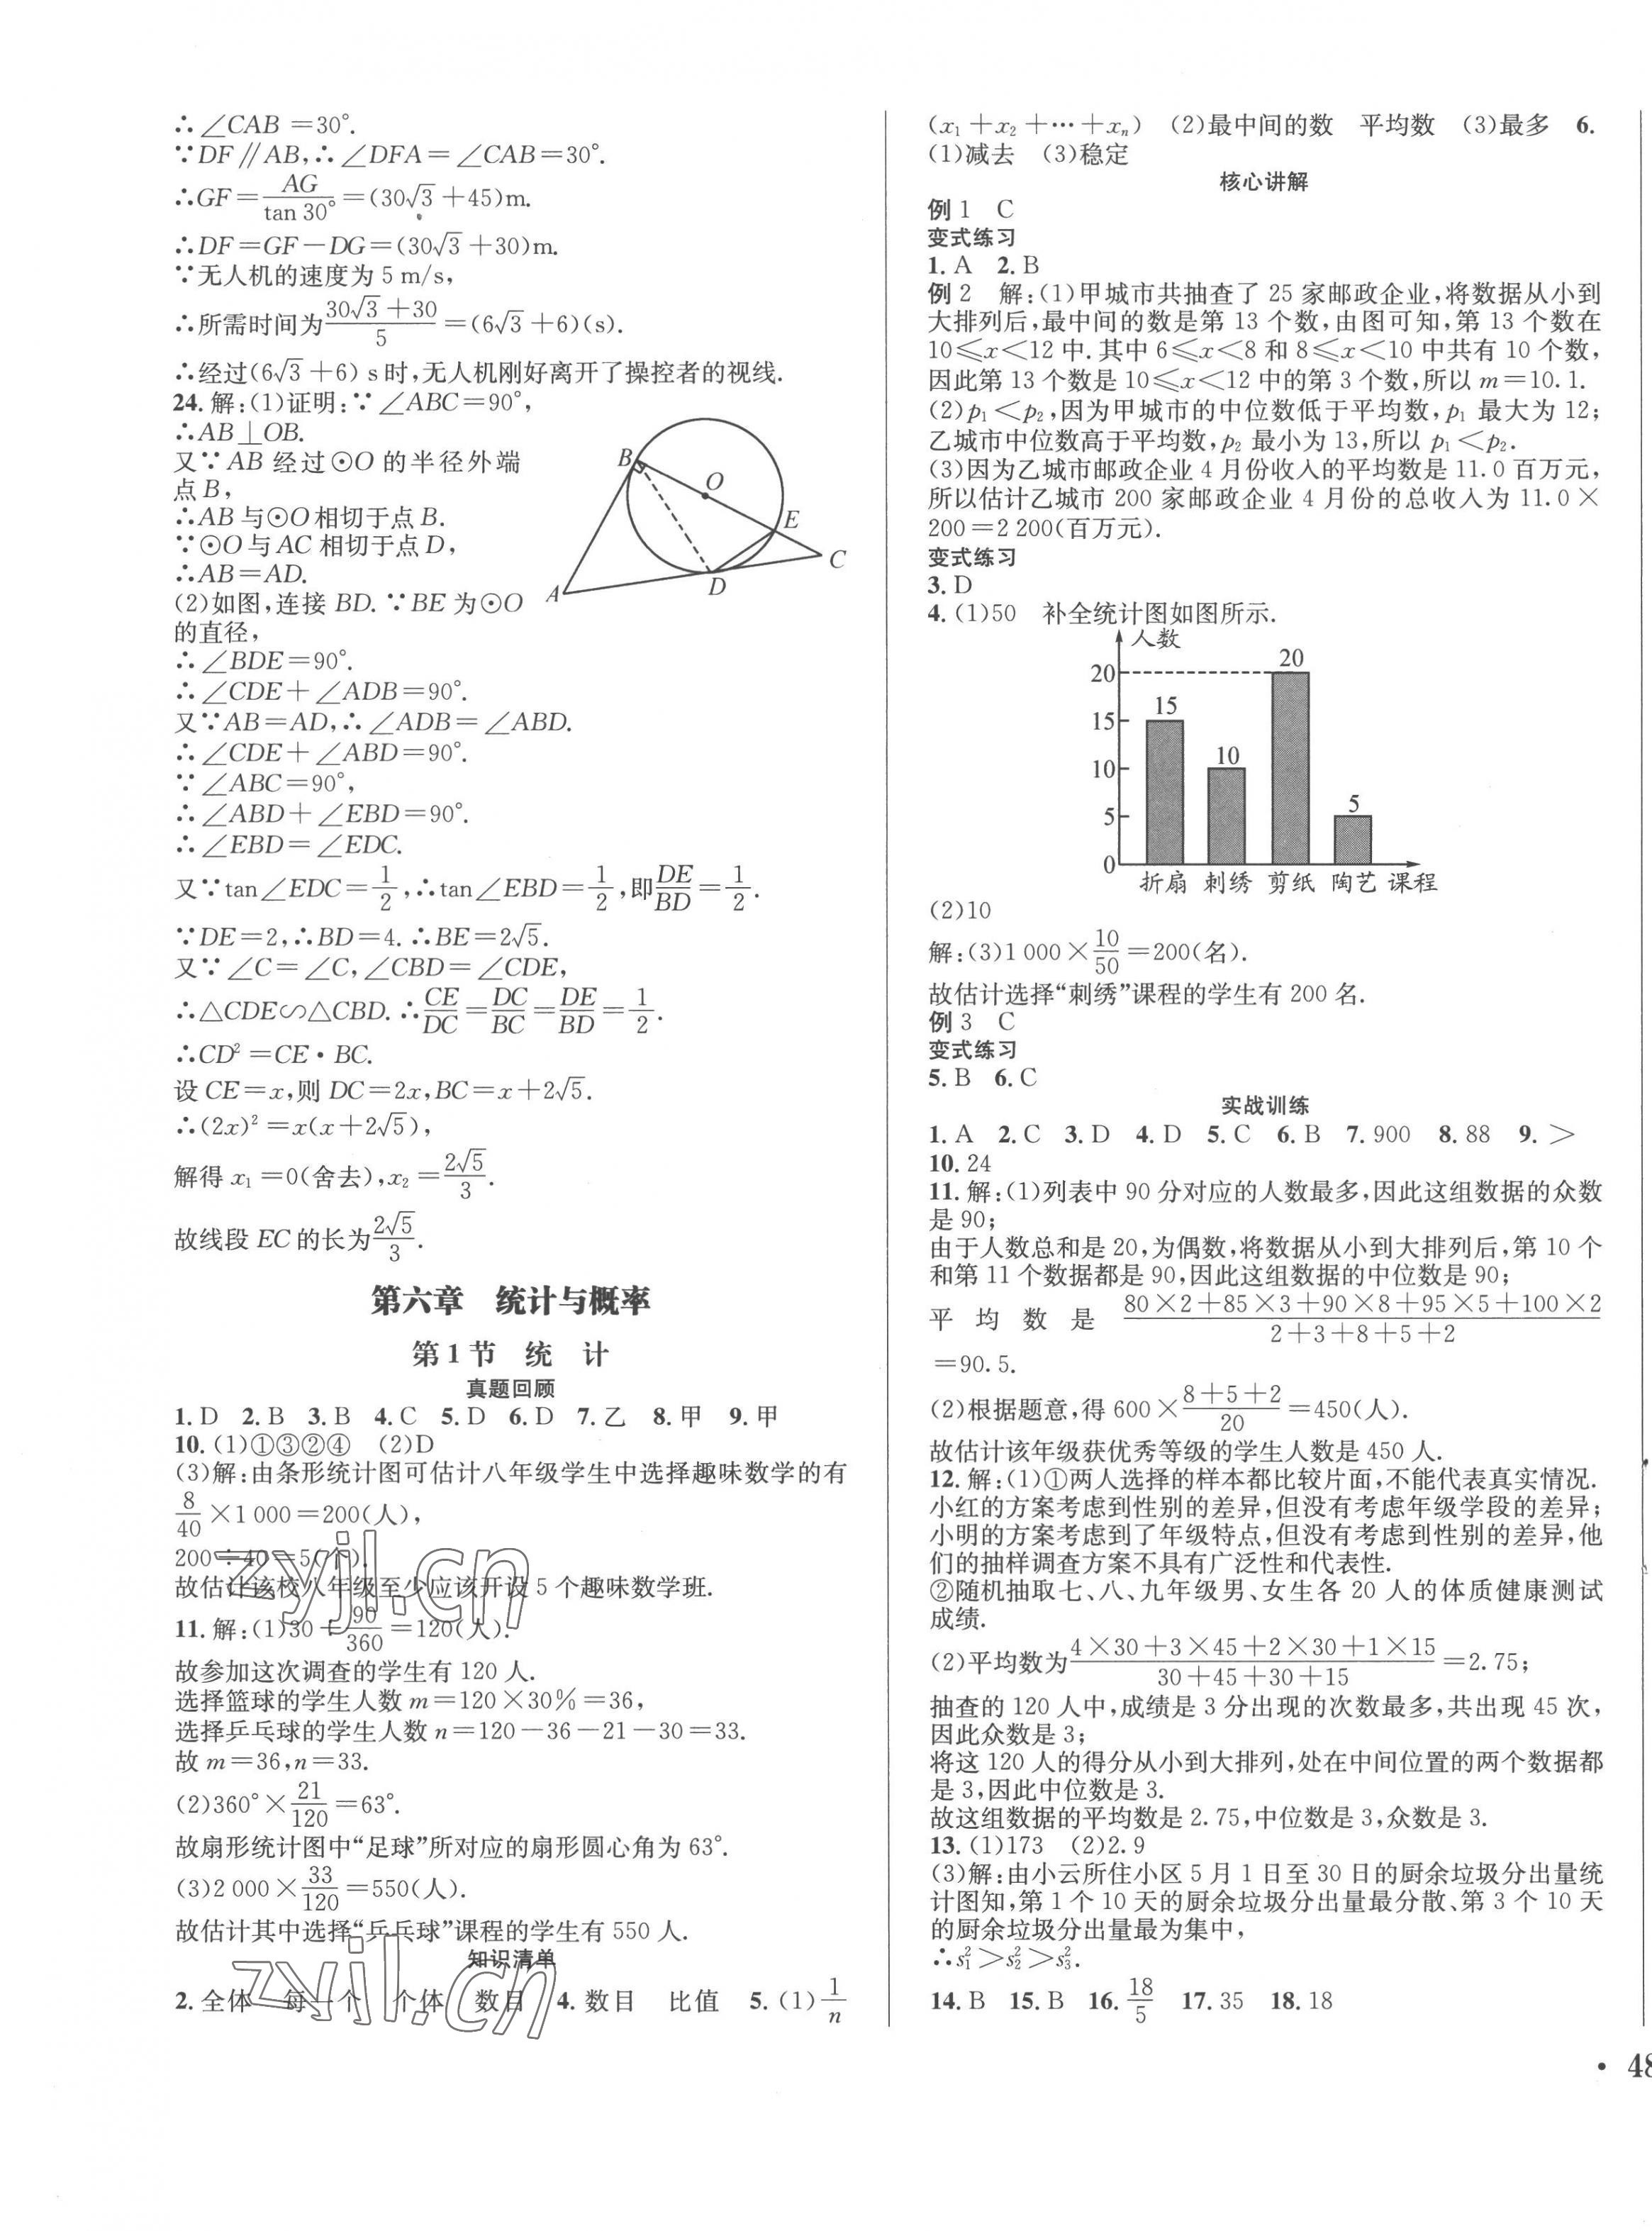 ∴∠CAB=30°.
∵DF∥AB,∴∠DFA=∠CAB=30°.
∴GF=AG/tan 30°=(30√3+45)m.
∴DF=GF-DG=(30√3+30)m.
∵无人机的速度为 5 m/s,
∴所需时间为(30√3+30)/5=(6√3+6)(s).
∴经过(6√3+6) s时,无人机刚好离开了操控者的视线.
24.解:(1)证明:∵∠ABC=90°,
∴AB⊥OB.
又∵AB 经过⊙O 的半径外端
点 B,
∴AB 与⊙O 相切于点 B.
∵⊙O 与 AC 相切于点 D,
∴AB=AD.
(2)如图,连接 BD.∵BE 为⊙O
的直径,
∴∠BDE=90°.
∴∠CDE+∠ADB=90°.
又∵AB=AD,∴∠ADB=∠ABD.
∴∠CDE+∠ABD=90°.
∵∠ABC=90°,
∴∠ABD+∠EBD=90°.
∴∠EBD=∠EDC.
又∵tan∠EDC=1/2,∴tan∠EBD=1/2,即DE/BD=1/2.
∵DE=2,∴BD=4.∴BE=2√5.
又∵∠C=∠C,∠CBD=∠CDE,
∴△CDE∽△CBD.∴CE/DC=DC/BC=DE/BD=1/2.
∴CD²=CE·BC.
设 CE=x,则 DC=2x,BC=x+2√5.
∴(2x)²=x(x+2√5),
解得 x₁=0(舍去),x₂=2√5/3.
故线段 EC 的长为2√5/3.
B
O
E
C
D
A
第六章 统计与概率
第 1 节 统 计
真题回顾
1.D 2.B 3.B 4.C 5.D 6.D 7.乙 8.甲 9.甲
10.(1)①③②④ (2)D
(3)解:由条形统计图可估计八年级学生中选择趣味数学的有
8/40×1 000=200(人),
200÷40=5(个).
故估计该校八年级至少应该开设 5 个趣味数学班.
11.解:(1)30÷90/360=120(人).
故参加这次调查的学生有 120 人.
选择篮球的学生人数 m=120×30%=36,
选择乒乓球的学生人数 n=120-36-21-30=33.
故 m=36,n=33.
(2)360°×21/120=63°.
故扇形统计图中“足球”所对应的扇形圆心角为 63°.
(3)2 000×33/120=550(人).
故估计其中选择“乒乓球”课程的学生有 550 人.
知识清单
2.全体 每一个 个体 数目 4.数目 比值 5.(1)1/n
(x₁+x₂+⋯+xₙ) (2)最中间的数 平均数 (3)最多 6.
(1)减去 (3)稳定
核心讲解
例 1 C
变式练习
1.A 2.B
例 2 解:(1)甲城市共抽查了 25 家邮政企业,将数据从小到
大排列后,最中间的数是第 13 个数,由图可知,第 13 个数在
10≤x<12 中.其中 6≤x<8 和 8≤x<10 中共有 10 个数,
因此第 13 个数是 10≤x<12 中的第 3 个数,所以 m=10.1.
(2)p₁<p₂,因为甲城市的中位数低于平均数,p₁ 最大为 12;
乙城市中位数高于平均数,p₂ 最小为 13,所以 p₁<p₂.
(3)因为乙城市邮政企业 4 月份收入的平均数是 11.0 百万元,
所以估计乙城市 200 家邮政企业 4 月份的总收入为 11.0×
200=2 200(百万元).
变式练习
3.D
4.(1)50 补全统计图如图所示.
人数
20
15
10
5
0
15
10
20
5
折扇 刺绣 剪纸 陶艺 课程
(2)10
解:(3)1 000×10/50=200(名).
故估计选择“刺绣”课程的学生有 200 名.
例 3 C
变式练习
5.B 6.C
实战训练
1.A 2.C 3.D 4.D 5.C 6.B 7.900 8.88 9.>
10.24
11.解:(1)列表中 90 分对应的人数最多,因此这组数据的众数
是 90;
由于人数总和是 20,为偶数,将数据从小到大排列后,第 10 个
和第 11 个数据都是 90,因此这组数据的中位数是 90;
平均数是 (80×2+85×3+90×8+95×5+100×2)/(2+3+8+5+2)
=90.5.
(2)根据题意,得 600×(8+5+2)/20=450(人).
故估计该年级获优秀等级的学生人数是 450 人.
12.解:(1)①两人选择的样本都比较片面,不能代表真实情况.
小红的方案考虑到性别的差异,但没有考虑年级学段的差异;
小明的方案考虑到了年级特点,但没有考虑到性别的差异,他
们的抽样调查方案不具有广泛性和代表性.
②随机抽取七、八、九年级男、女生各 20 人的体质健康测试
成绩.
(2)平均数为(4×30+3×45+2×30+1×15)/(30+45+30+15)=2.75;
抽查的 120 人中,成绩是 3 分出现的次数最多,共出现 45 次,
因此众数是 3;
将这 120 人的得分从小到大排列,处在中间位置的两个数据都
是 3,因此中位数是 3.
故这组数据的平均数是 2.75,中位数是 3,众数是 3.
13.(1)173 (2)2.9
(3)解:由小云所住小区 5 月 1 日至 30 日的厨余垃圾分出量统
计图知,第 1 个 10 天的厨余垃圾分出量最分散、第 3 个 10 天
的厨余垃圾分出量最为集中,
∴s₁²>s₂²>s₃².
14.B 15.B 16.18/5 17.35 18.18
· 48
zyjl.cn
zyjl.cn